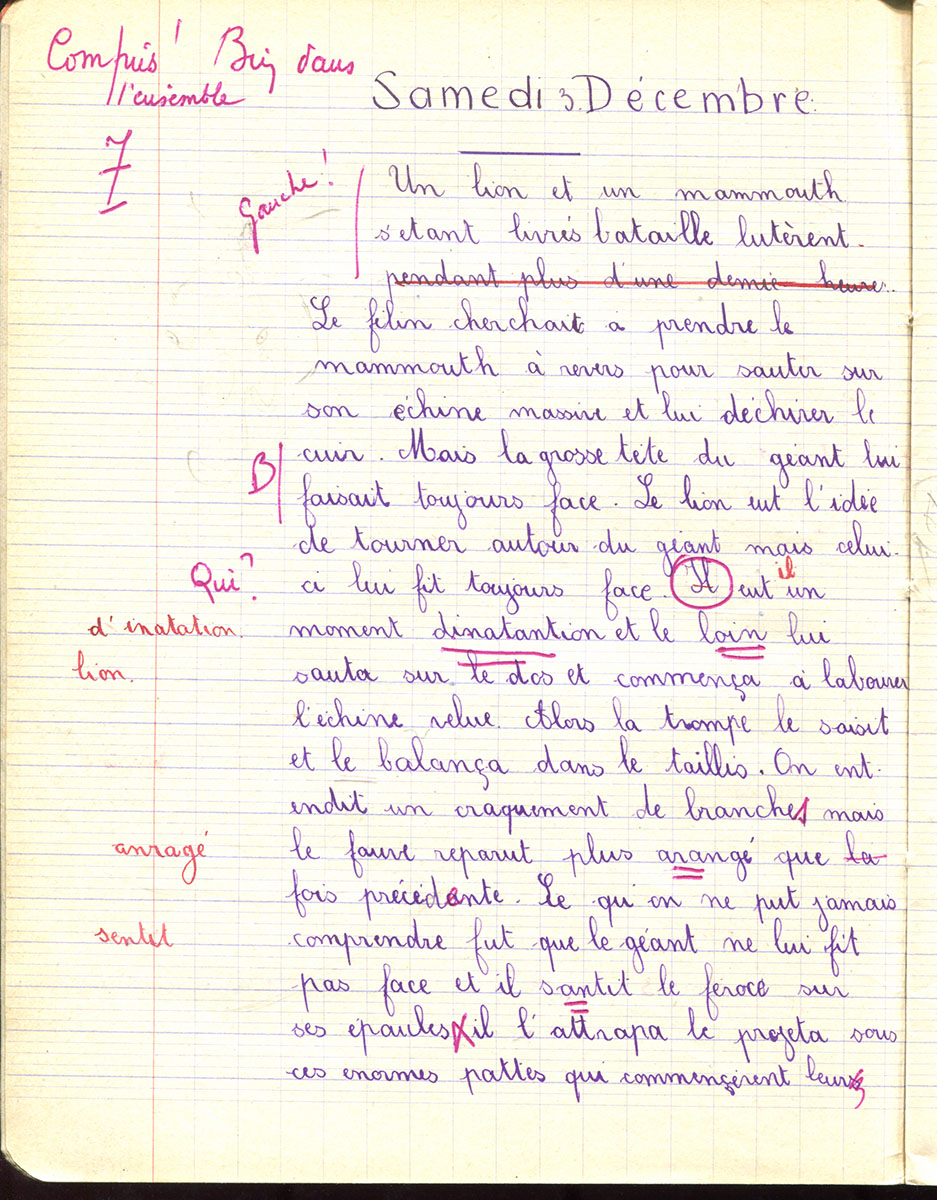 Compris! Bien dans
l'ensemble
Samedi 3 Décembre
7
Gauche!
Un lion et un mammouth
s'etant livrés bataille lutèrent
pendant plus d'une demie heure.
Le félin cherchait à prendre le
mammouth à revers pour sauter sur
son échine massive et lui déchirer le
cuir. Mais la grosse tête du géant lui
B
faisait toujours face. Le lion eut l'idée
de tourner autour du géant mais celui-
Qui?
ci lui fit toujours face. Il eut il un
d'inatation.
moment dinatantion et le loin lui
lion.
sauta sur le dos et commença à labourer
l'échine velue. Alors la trompe le saisit
et le balança dans le taillis. On ent-
endit un craquement de branches mais
anragé
le fauve reparut plus arangé que la
fois précédente. Ce qu'on ne put jamais
sentit
comprendre fut que le géant ne lui fit
pas face et il santit le féroce sur
ses épaules il l'attrapa le projeta sous
ces enormes pattes qui commençèrent leurs